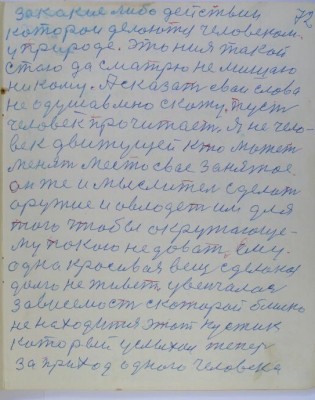 за какие либо действии 72
которои делоютця человеком
у природе. Это ния такой
стою да сматрю не мишаю
никому. А сказат свои слова
не одушавлно скожу. пуст
человек прочитает. Я не чело-
век движущей кто может
менят место свое занятое.
он же и мыслител сделат
оружие и овлодет им для
того чтобы окружающе-
му покою не доват. Ему.
одна красивая вещ сделана
долго не живет увенчалас
зависемост с которой близко
не находится этот кустик
который услыхал тепер
за приход одного человека